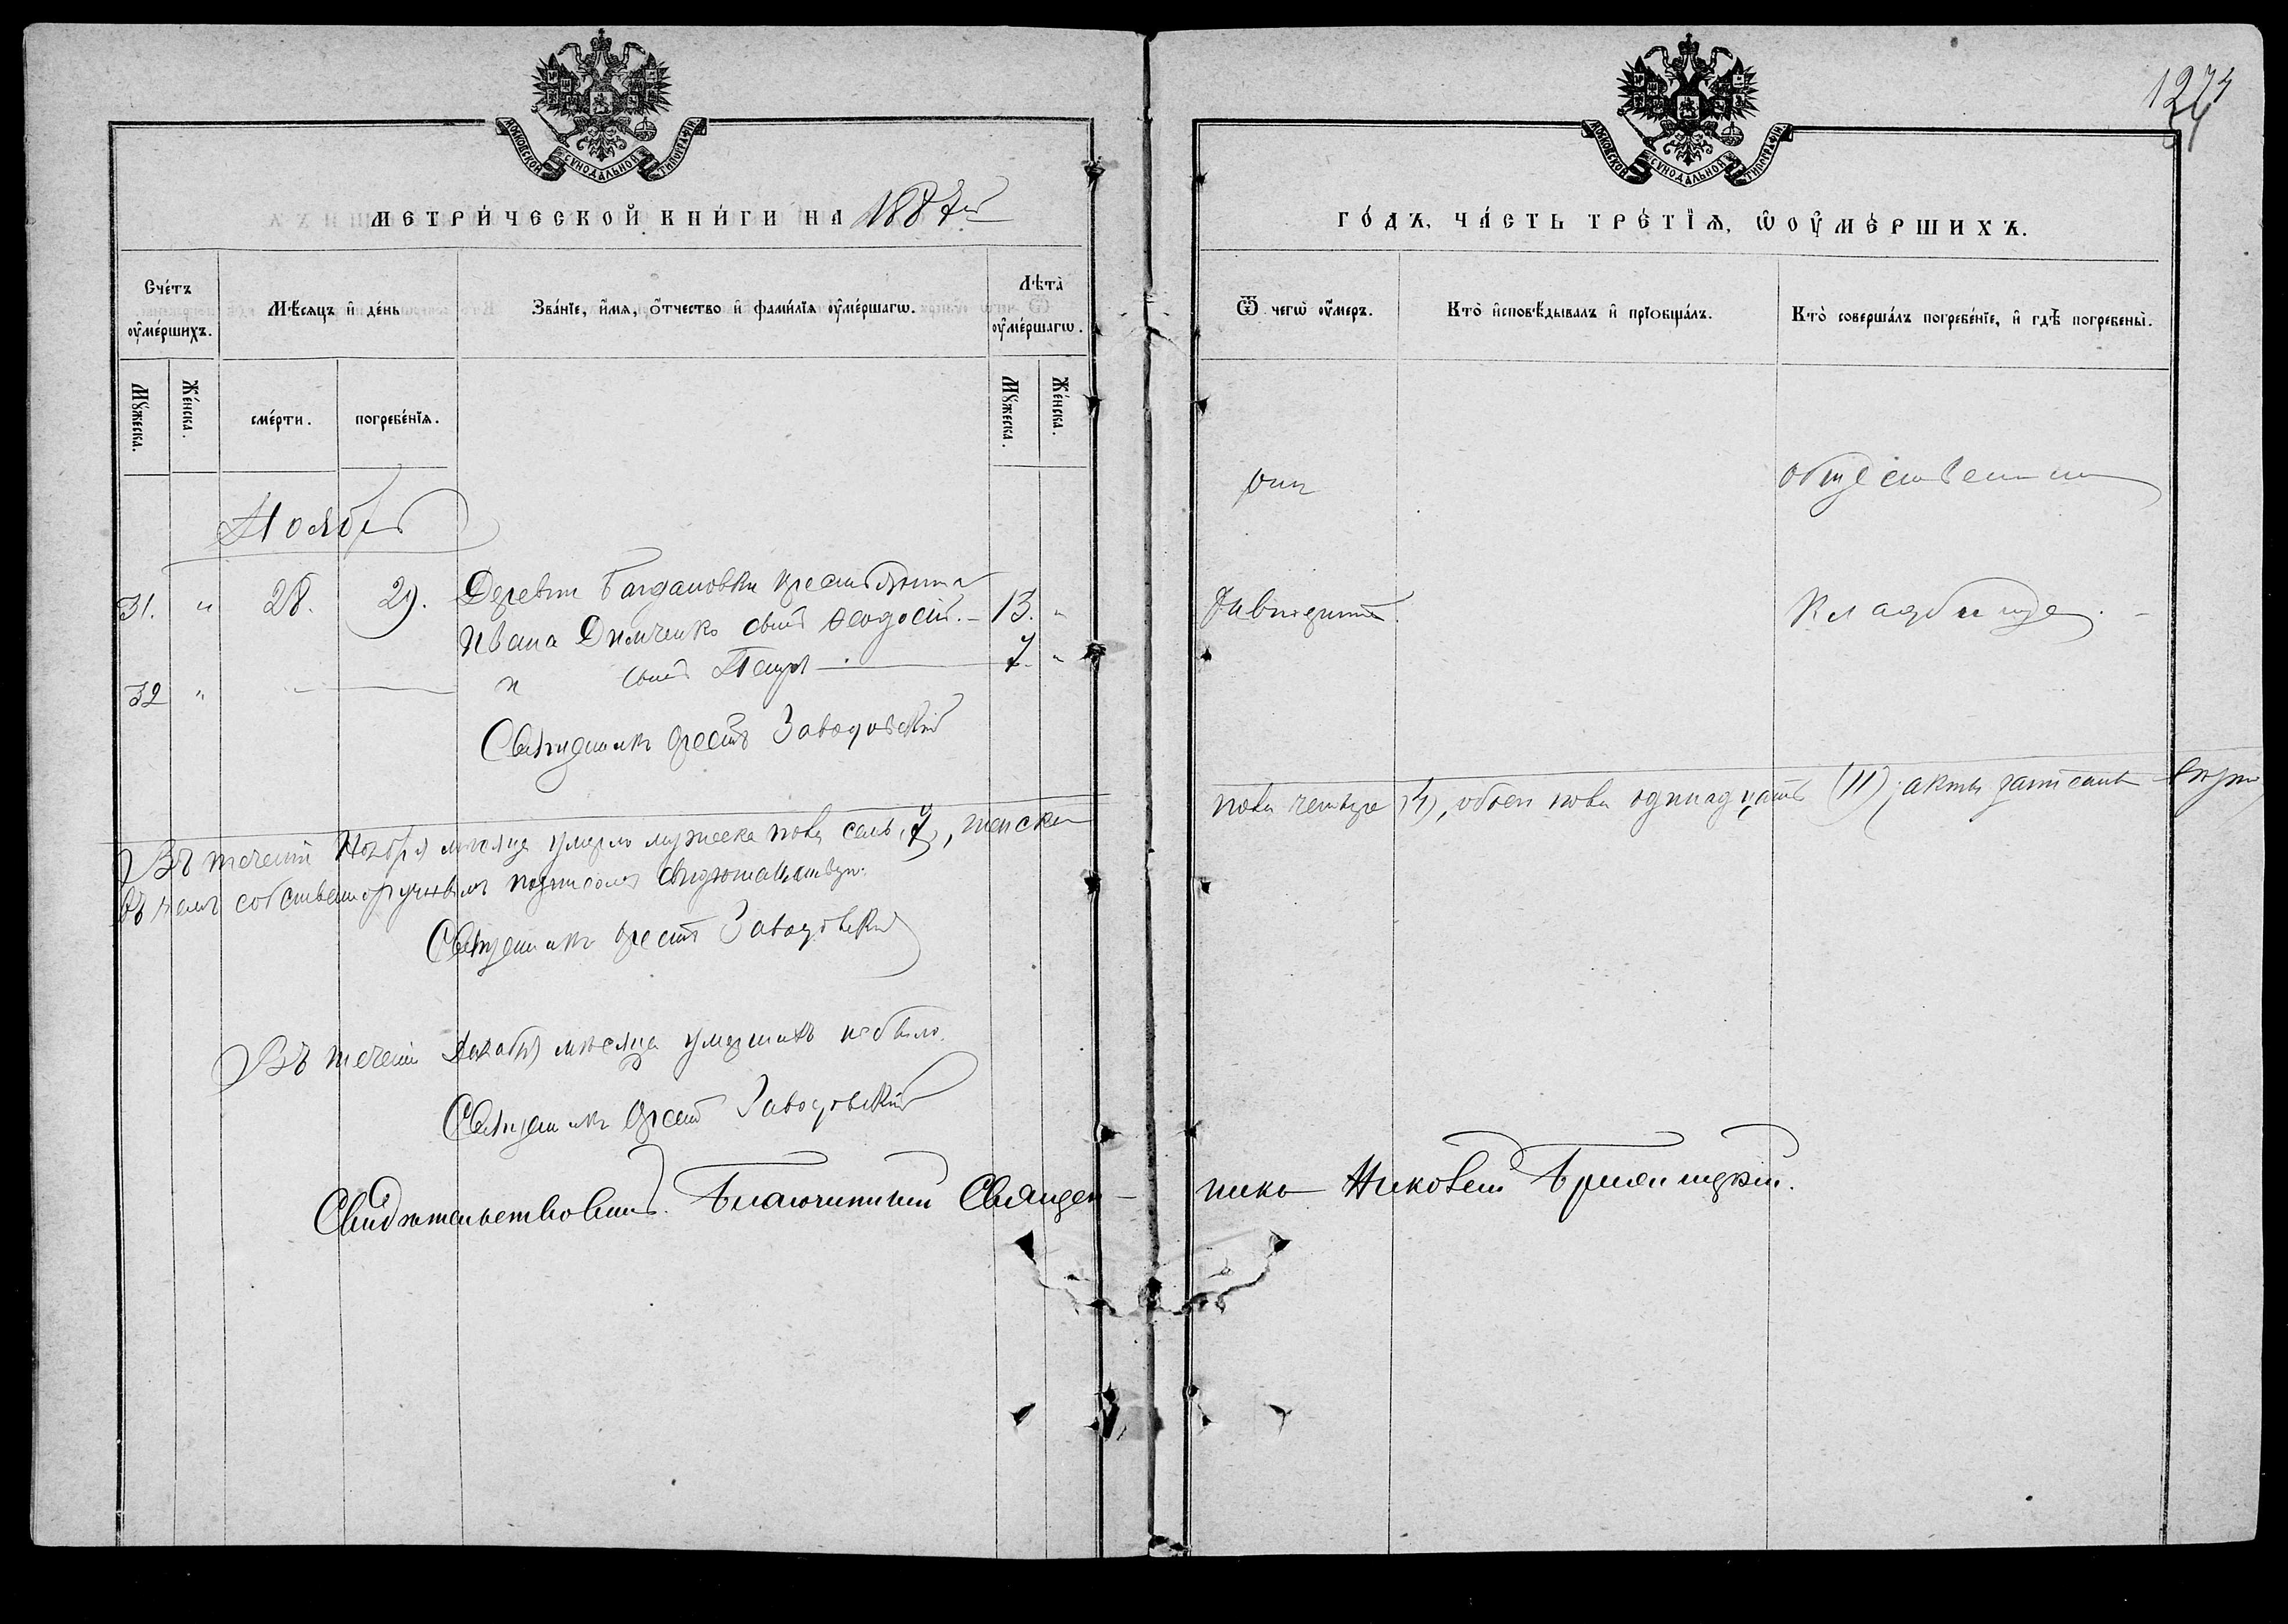 МОСКОВСКОЙ СѴНОДАЛЬНОЙ ТИПОГРАФІИ
МЕТРИ́ЧЕСКОЙ КНИ́ГИ НА 1887й
Сче́тъ ѹ҆ме́ршихъ.
Мѣ́сяцъ и҆ де́нь
Зва́нїе, и҆́мя, ѻ҆́тчество и҆ фами́лїя ѹ҆ме́ршагѡ.
Лѣта̀ ѹ҆ме́ршагѡ.
Мꙋ́жеска.
Же́нска.
сме́рти.
погребе́нїѧ.
Мꙋ́жеска.
Же́нска.
Ноябрь
31. " 28. 29. Деревни Багдановки крестьянина
Ивана Димченко сынъ Ѳеодосій. - 13. "
32 " - и сынъ Петръ - 7. "
Священникъ Орестъ Заводовскій
Въ теченіи Ноября мѣсяца умерло мужеска пола семь, 7, женска
въ немъ собственоручнымъ подписомъ свидѣтельствую.
Священникъ Орестъ Заводовскій
Въ теченіи Декабря мѣсяца умершихъ небыло.
Священникъ Орестъ Заводовскій
Свидѣтельствовалъ. Благочинный Священ-
МОСКОВСКОЙ СѴНОДАЛЬНОЙ ТИПОГРАФІИ
ГО́ДЪ, ЧА́СТЬ ТРЕ́ТЇѦ, Ѡ҆ ОУ҆МЕ́РШИХЪ.
Ѿ чегѡ̀ ѹ҆́меръ.
Кто̀ и҆сповѣ́дывалъ и҆ прїобща́лъ.
Кто̀ соверша́лъ погребе́нїе, и҆ гдѣ̀ погребены̀.
общественномъ
Дифтеритъ.
Кладбище. -
пола четыре (4), обоего пола одинадцать (11); акты записаны
никъ Яковъ